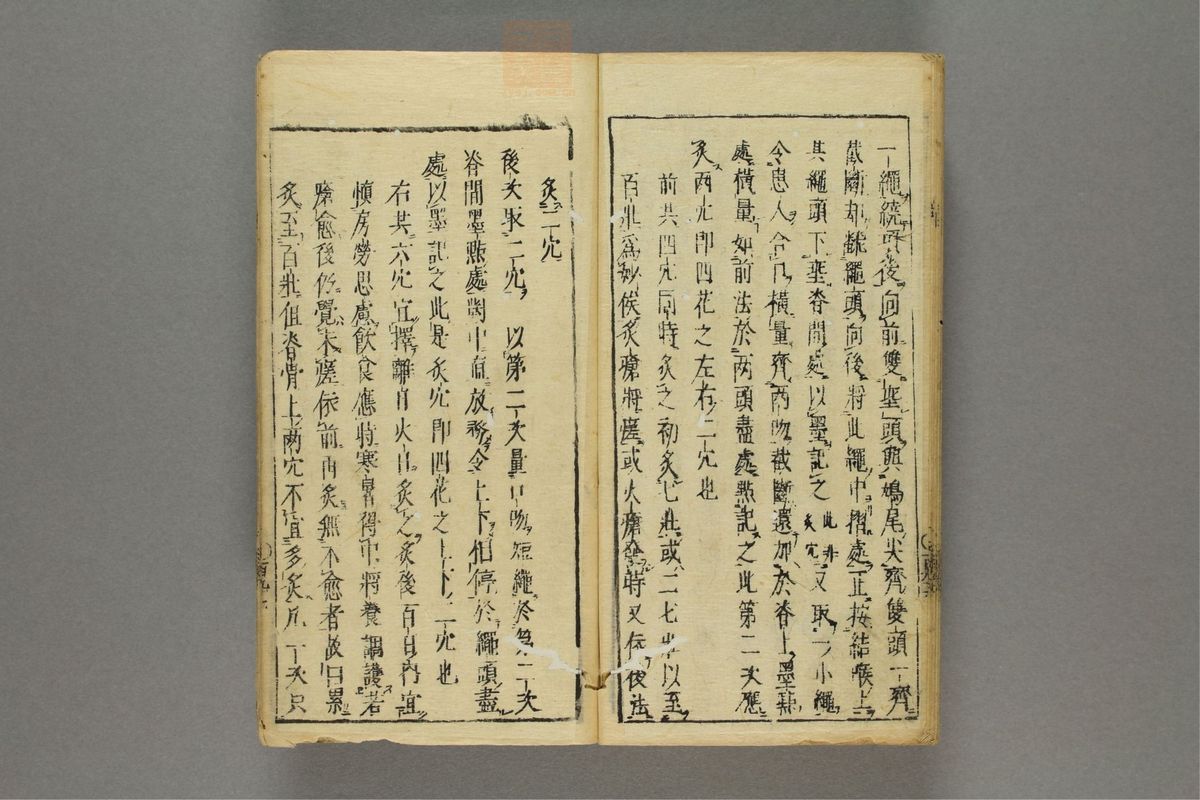 一繩繞項後向前雙垂頭與鳩尾尖齊雙頭一齊
截斷却飜繩頭向後將此繩中摺處正按結喉上
其繩頭下垂脊間處以墨記之此非灸穴又取一小繩
令患人合口橫量齊兩吻截斷還加於脊上墨點
處橫量如前法於兩頭盡處點記之此第二次應
灸兩穴即四花之左右二穴也
前共四穴同時灸之初灸七壯或二七壯以至
百壯爲妙候灸瘡將瘥或火瘡發時又依後法
灸二穴
後次取二穴以第二次量口吻短繩於第二次
脊間墨點處對中直放務令上下相停於繩頭盡
處以墨記之此是灸穴即四花之上下二穴也
右共六穴宜擇離日火日灸之灸後百日內宜
慎房勞思慮飲食應時寒暑得中將養調護若
瘡愈後仍覺未瘥依前再灸無不愈者故曰累
灸至百壯但脊骨上兩穴不宜多灸凡一次只